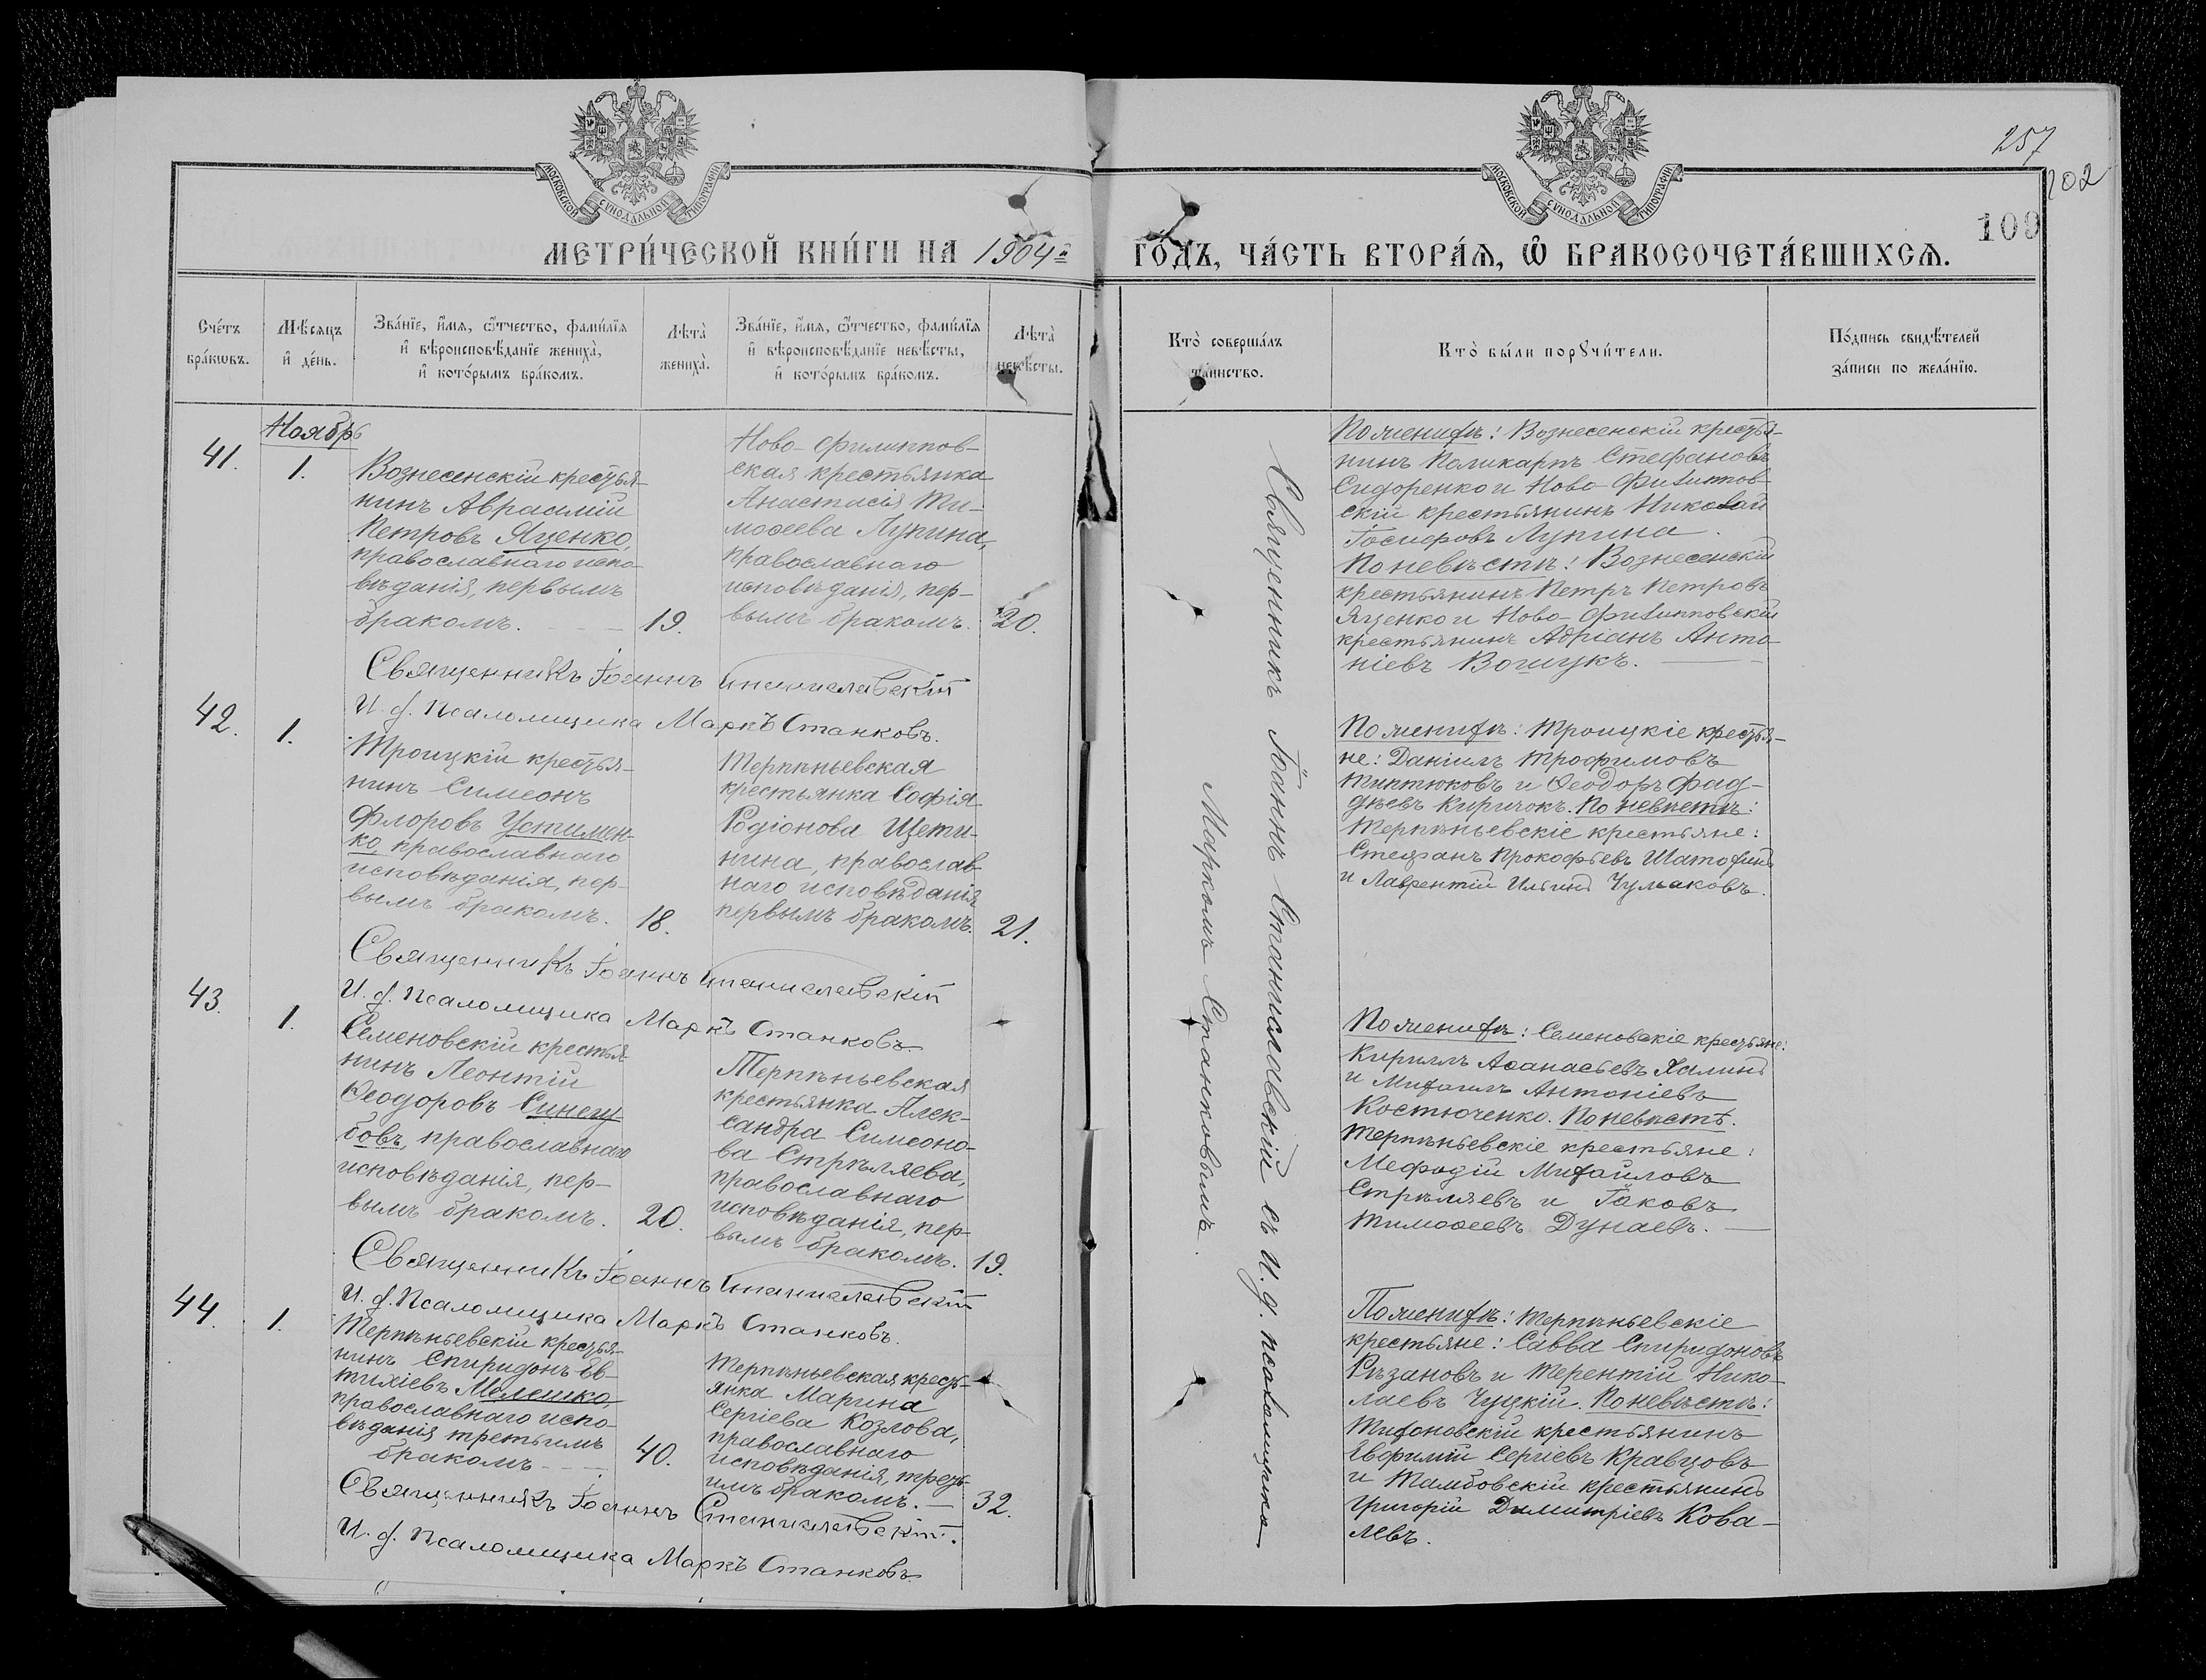 257
202
109
МОСКОВСКОЙ СѴНОДАЛЬНОЙ ТИПОГРАФІИ
МОСКОВСКОЙ СѴНОДАЛЬНОЙ ТИПОГРАФІИ
МЕТРИ́ЧЕСКОЙ КНИ́ГИ НА 1904й
ГО́ДЪ, ЧА́СТЬ ВТОРА́Ѧ, Ѿ БРАКОСОЧЕТА́ВШИХСѦ.
Сче́тъ
бра́кѡвъ.
Мѣ́сяцъ
и҆ де́нь.
Зва́нїе, и҆́мѧ, ѻ҆́тчество, фами́лїѧ
и҆ вѣроисповѣ́данїе жениха̀,
и҆ кото́рымъ бра́комъ.
Лѣта̀
жениха̀.
Зва́нїе, и҆́мѧ, ѻ҆́тчество, фами́лїѧ
и҆ вѣроисповѣ́данїе невѣ́сты,
и҆ кото́рымъ бра́комъ.
Лѣта̀
невѣ́сты.
Кто̀ соверша́лъ
та́инство.
Кто̀ бы́ли порꙋчи́тели.
По́дпись свидѣ́телей
за́писи по жела́нїю.
Ноябрь
41.
1.
Вознесенскій крестья-
нинъ Авраамій
Петровъ Яценко,
православнаго испо-
вѣданія, первымъ
бракомъ.
19.
Ново-Филиппов-
ская крестьянка
Анастасія Ти-
моѳеева Лупина,
православнаго
исповѣданія, пер-
вымъ бракомъ.
20.
По женихѣ: Вознесенскій крестья-
нинъ Поликарпъ Стефановъ
Сидоренко и Ново-Филиппов-
скій крестьянинъ Николай
Іосифовъ Лупина.
По невѣстѣ: Вознесенскій
крестьянинъ Петръ Петровъ
Яценко и Ново-Филипповскій
крестьянинъ Адріанъ Анто-
ніевъ Вощукъ.
Священникъ Іоаннъ Станиславскій
И. д. Псаломщика Маркъ Станковъ.
42.
1.
Троицкій крестья-
нинъ Симеонъ
Флоровъ Устимен-
ко, православнаго
исповѣданія, пер-
вымъ бракомъ.
18.
Терпѣньевская
крестьянка Софія
Родіонова Щети-
нина, православ-
наго исповѣданія
первымъ бракомъ.
21.
По женихѣ: Троицкіе крестья-
не: Даніилъ Трофимовъ
Типтюковъ и Ѳеодоръ Фад-
дѣевъ Киричокъ. По невѣстѣ:
Терпѣньевскіе крестьяне:
Стефанъ Прокофьевъ Шатохинъ
и Лаврентій Ильинъ Чульаковъ.
Священникъ Іоаннъ Станиславскій
И. д. Псаломщика Маркъ Станковъ.
43.
1.
Семеновскій крестья-
нинъ Леонтій
Ѳеодоровъ Синегу-
бовъ, православнаго
исповѣданія, пер-
вымъ бракомъ.
20.
Терпѣньевская
крестьянка Алек-
сандра Симеоно-
ва Стрѣляева,
православнаго
исповѣданія, пер-
вымъ бракомъ.
19.
По женихѣ: Семеновскіе крестьяне:
Кириллъ Аѳанасьевъ Халинъ
и Михаилъ Антоніевъ
Костюченко. По невѣстѣ.
Терпѣньевскіе крестьяне:
Мефодій Михайловъ
Стрѣляевъ и Іаковъ
Тимоѳеевъ Дунаевъ.
Священникъ Іоаннъ Станиславскій
И. д. Псаломщика Маркъ Станковъ.
44.
1.
Терпѣньевскій крестья-
нинъ Спиридонъ Ев-
тихіевъ Мелешко,
православнаго испо-
вѣданія третьимъ
бракомъ
40.
Терпѣньевская кресть-
янка Марина
Сергіева Козлова,
православнаго
исповѣданія, треть-
имъ бракомъ.
32.
По женихѣ: Терпѣньевскіе
крестьяне: Савва Спиридоновъ
Рѣзановъ и Терентій Нико-
лаевъ Чуцкій. По невѣстѣ:
Тихоновскій крестьянинъ
Евфимій Сергіевъ Кравцовъ
и Тамбовскій крестьянинъ
Григорій Димитріевъ Кова-
левъ.
Священникъ Іоаннъ Станиславскій.
И. д. Псаломщика Маркъ Станковъ.
Священникъ Іоаннъ Станиславскій съ И. д. псаломщика
Маркомъ Станковымъ.